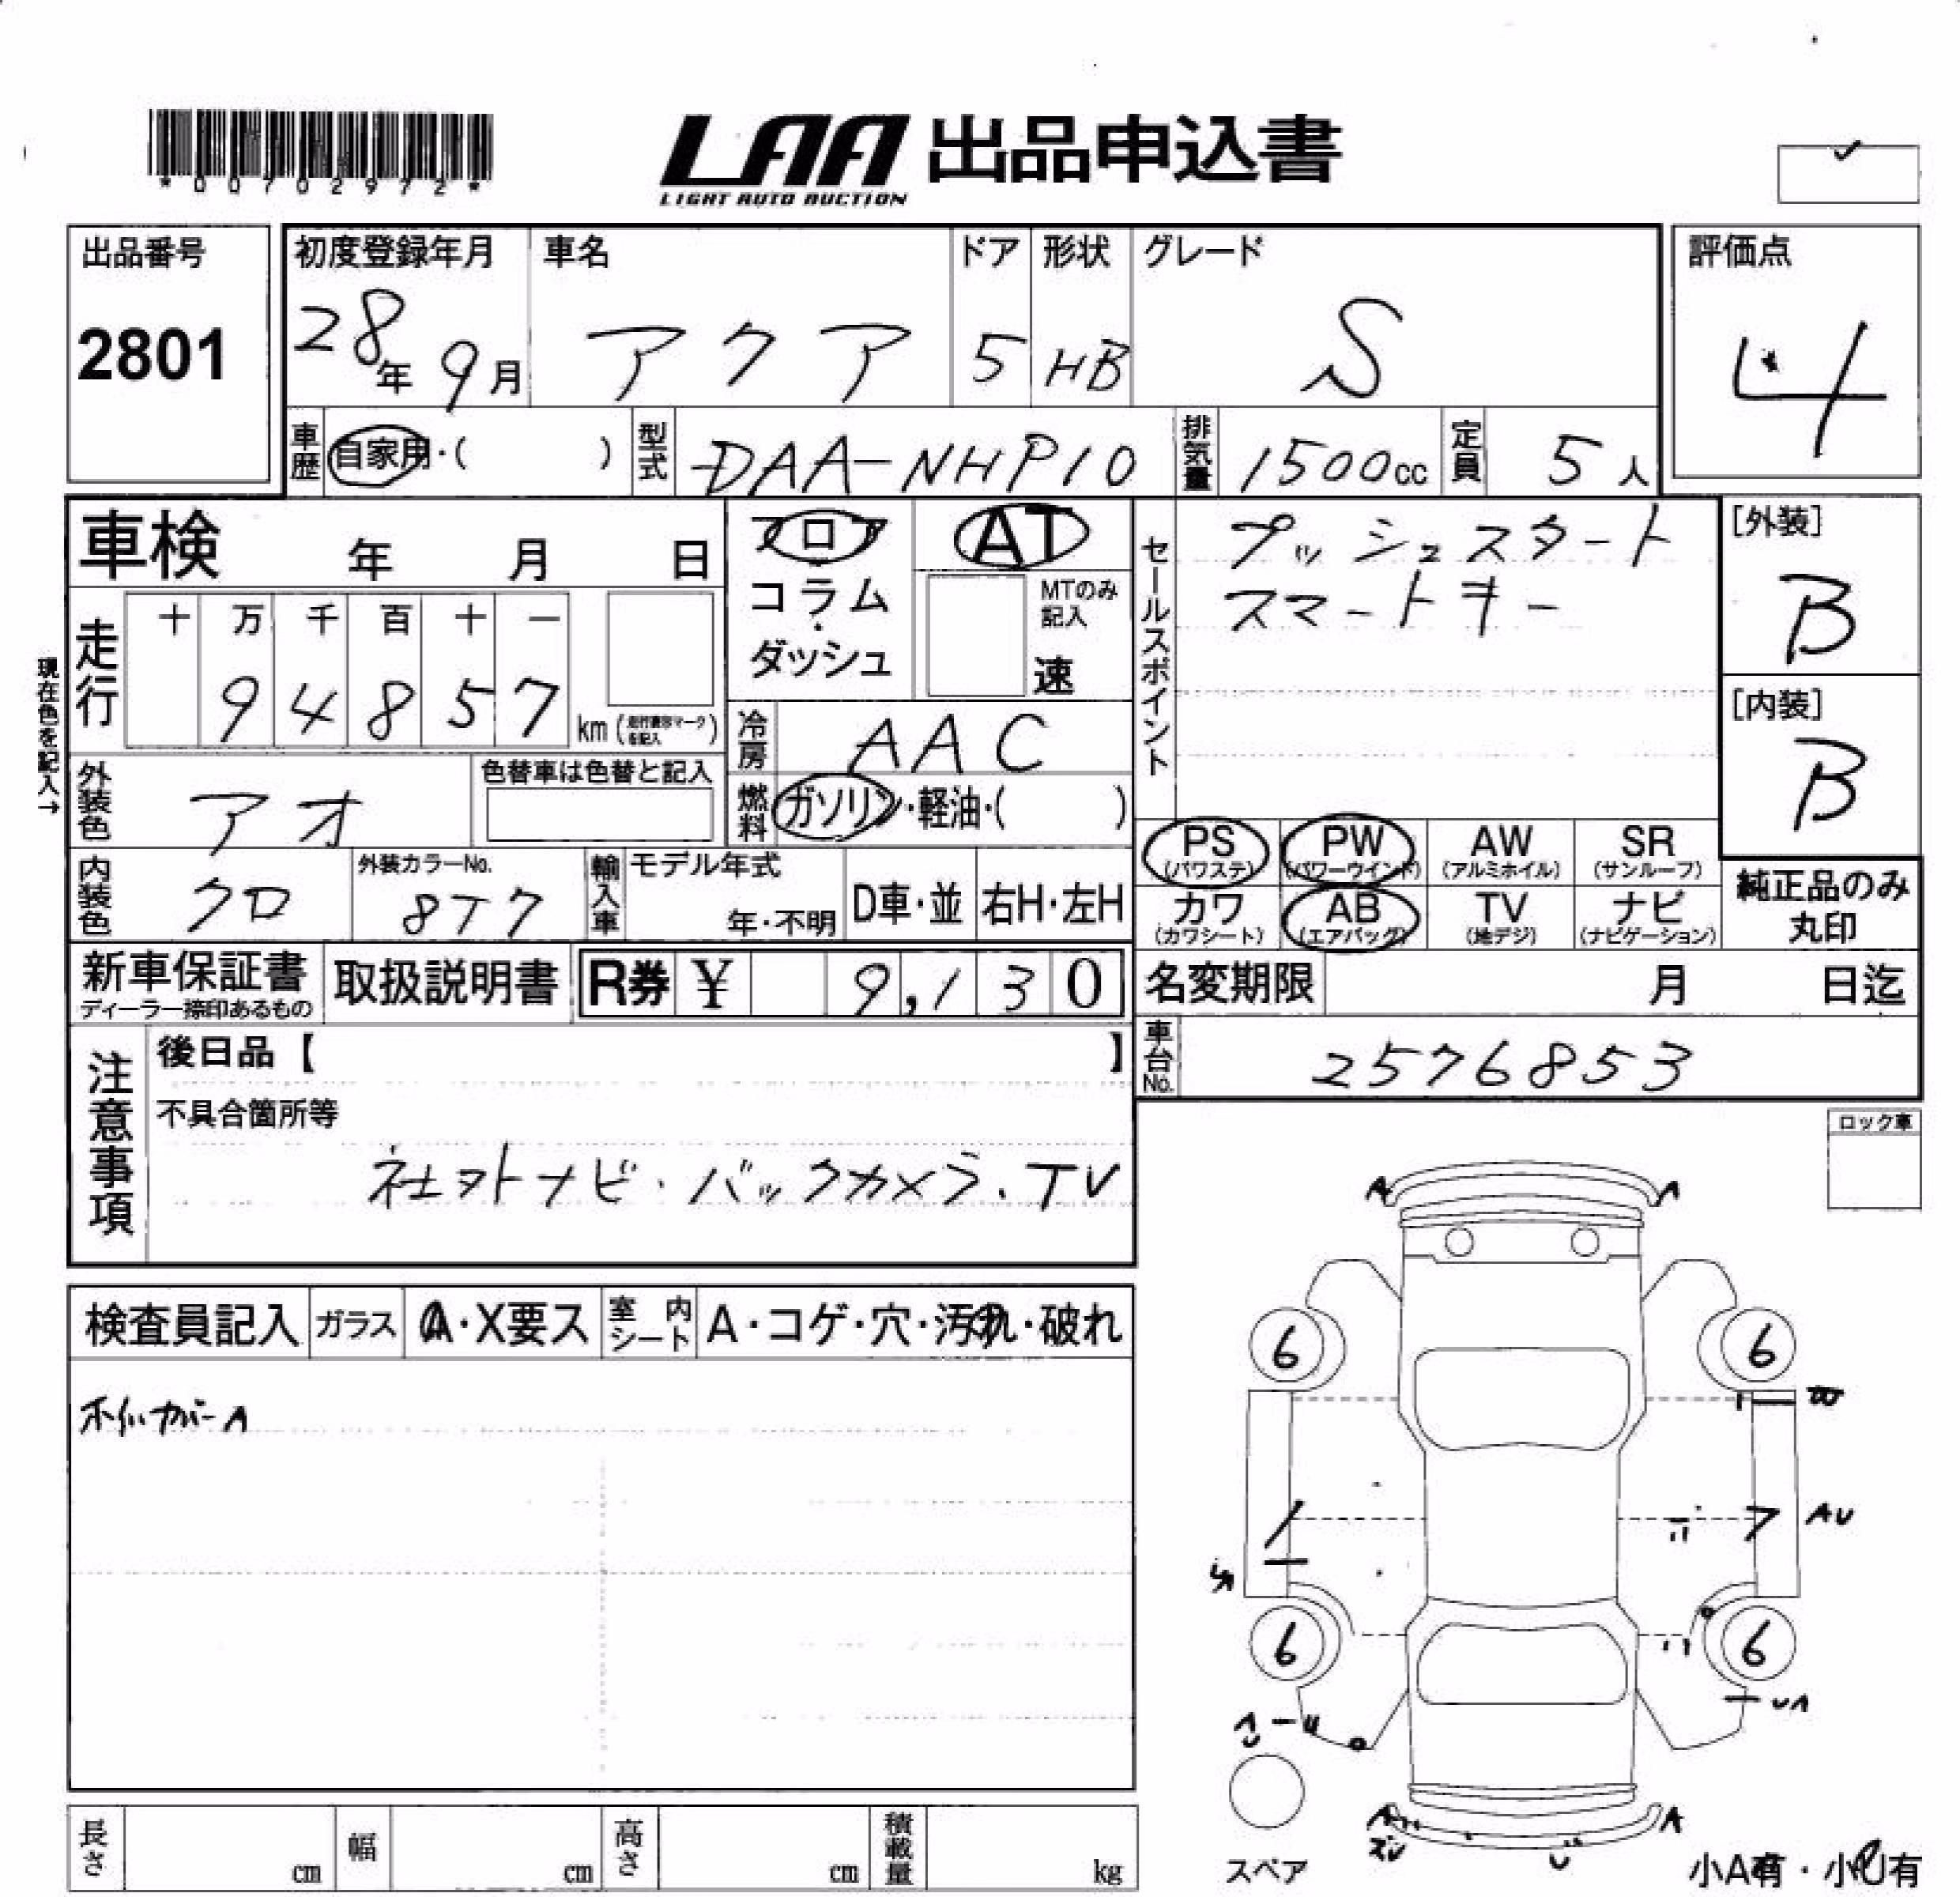 *00702972*
LAA 出品申込書
LIGHT AUTO AUCTION
出品番号
2801
初度登録年月
28年9月
車名
アクア
ドア
5
形状
HB
グレード
S
評価点
4
車歴 自家用・( )
型式 DAA-NHP10
排気量 1500cc
定員 5人
車検 年 月 日
走行
十 万 千 百 十 一
9 4 8 5 7 km
現在色を記入→
フロア
コラム
ダッシュ
AT
MTのみ記入
速
冷房 AAC
燃料 ガソリン・軽油・( )
セールスポイント
プッシュスタート
スマートキー
[外装]
B
[内装]
B
外装色 アオ
色替車は色替と記入
内装色 クロ
外装カラーNo.
8T7
輸入車
モデル年式
年・不明
D車・並
右H・左H
PS (パワステ)
PW (パワーウインド)
AW (アルミホイル)
SR (サンルーフ)
カワ (カワシート)
AB (エアバッグ)
TV (地デジ)
ナビ (ナビゲーション)
純正品のみ
丸印
新車保証書
ディーラー捺印あるもの
取扱説明書
R券 ¥ 9,130
名変期限 月 日迄
車台No. 2576853
注意事項
後日品【 】
不具合箇所等
社外ナビ・バックカメラ.TV
ロック車
検査員記入
ガラス
A・X要ス
室内シート
A・コゲ・穴・汚れ・破れ
ホイルカバーA
A A
6 6
AU
6 6
A A
スペア
長さ cm
幅 cm
高さ cm
積載量 kg
小A有・小U有